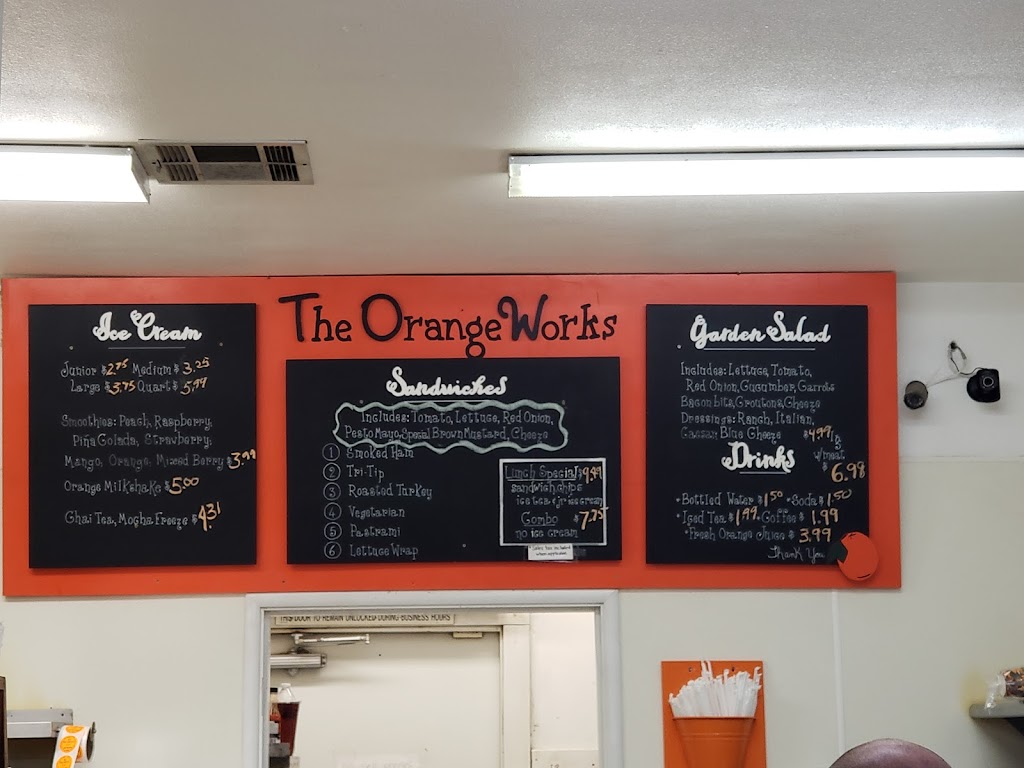 The Orange Works
Ice Cream
Junior $2.75 Medium $3.25
Large $3.75 Quart $5.99
Smoothies: Peach, Raspberry,
Piña Colada, Strawberry,
Mango, Orange, Mixed Berry $3.99
Orange Milkshake $5.00
Chai Tea, Mocha Freeze $4.31
Sandwiches
Includes: Tomato, Lettuce, Red Onion,
Pesto Mayo, Special Brown Mustard, Cheeze
1 Smoked Ham
2 Tri-Tip
3 Roasted Turkey
4 Vegetarian
5 Pastrami
6 Lettuce Wrap
Lunch Special $9.49
sandwich, chips
ice tea & jr ice cream
Combo $7.75
no ice cream
Garden Salad
Includes: Lettuce, Tomato,
Red Onion, Cucumber, Carrots
Bacon bits, Croutons, Cheeze
Dressings: Ranch, Italian,
Caesar, Blue Cheeze $4.99
w/meat
$6.98
Drinks
*Bottled Water $1.50 *Soda $1.50
*Iced Tea $1.99 *Coffee $1.99
*Fresh Orange Juice $3.99
Thank You
THIS DOOR TO REMAIN UNLOCKED DURING BUSINESS HOURS